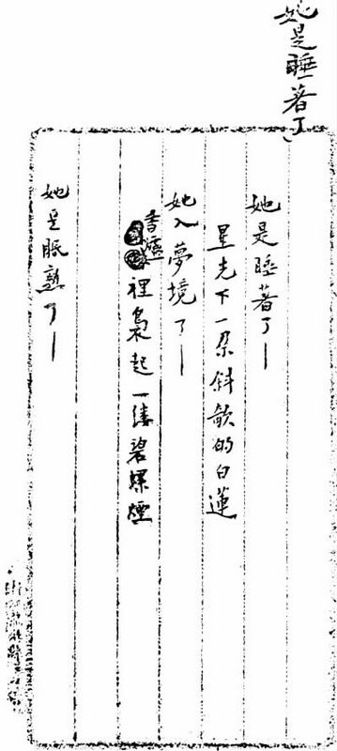 她是睡著了
她是睡著了—
星光下一朵斜欹的白蓮
她入夢境了—
香爐裡裊起一縷碧螺煙
她是眠熟了—